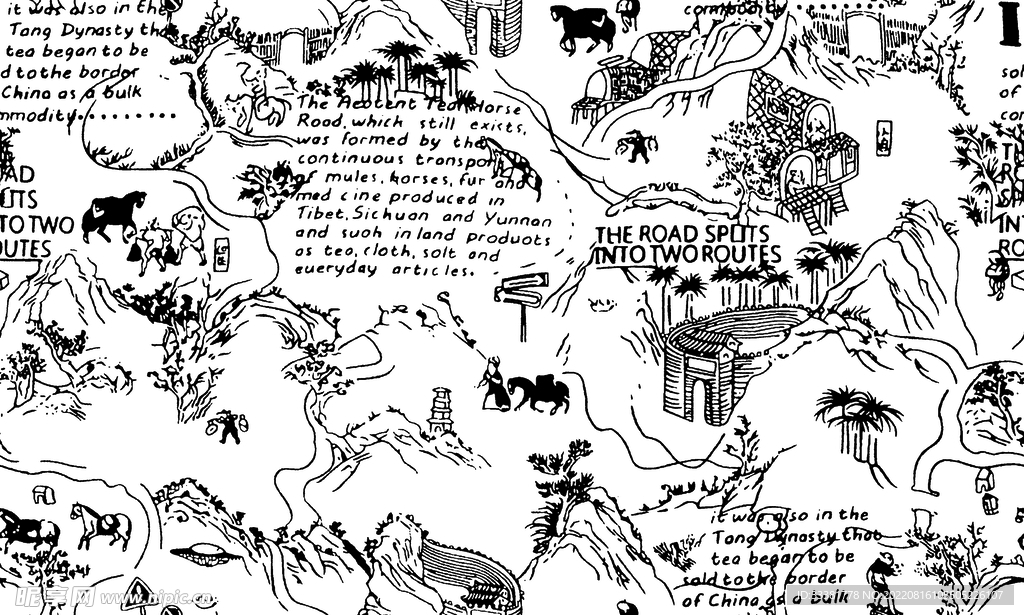 it was also in the
Tang Dynasty tha
tea began to be
d to the border
China as a bulk
mmodity.........
commodity
sol
of
com
The Ancent Tea Horse
Road, which still exists,
was formed by the
continuous transpor
of mules, horses, fur and
med cine produced in
Tibet, Sichuan and Yunnan
and suoh in land products
as tea, cloth, salt and
eueryday articles.
OAD
LITS
TO TWO
OUTES
THE ROAD SPLITS
INTO TWO ROUTES
TH
RO
SP
INT
RO
it was also in the
Tang Dynasty that
tea began to be
sold to the border
of China as a bulk
昵享网 www.nipic.cn